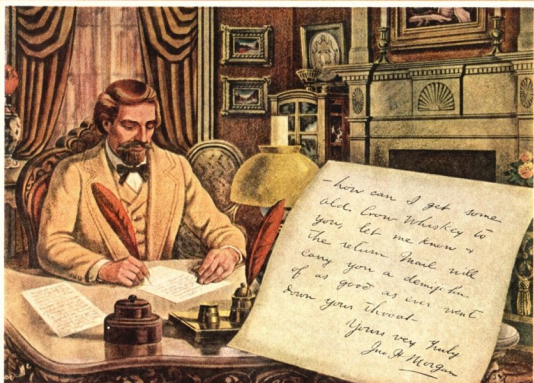 - how can I get some
Old Crow Whiskey to
you, let me know &
the return Mail will
carry you a demijohn
of as good as ever went
down your throat -
Yours very truly
Jno. H. Morgan